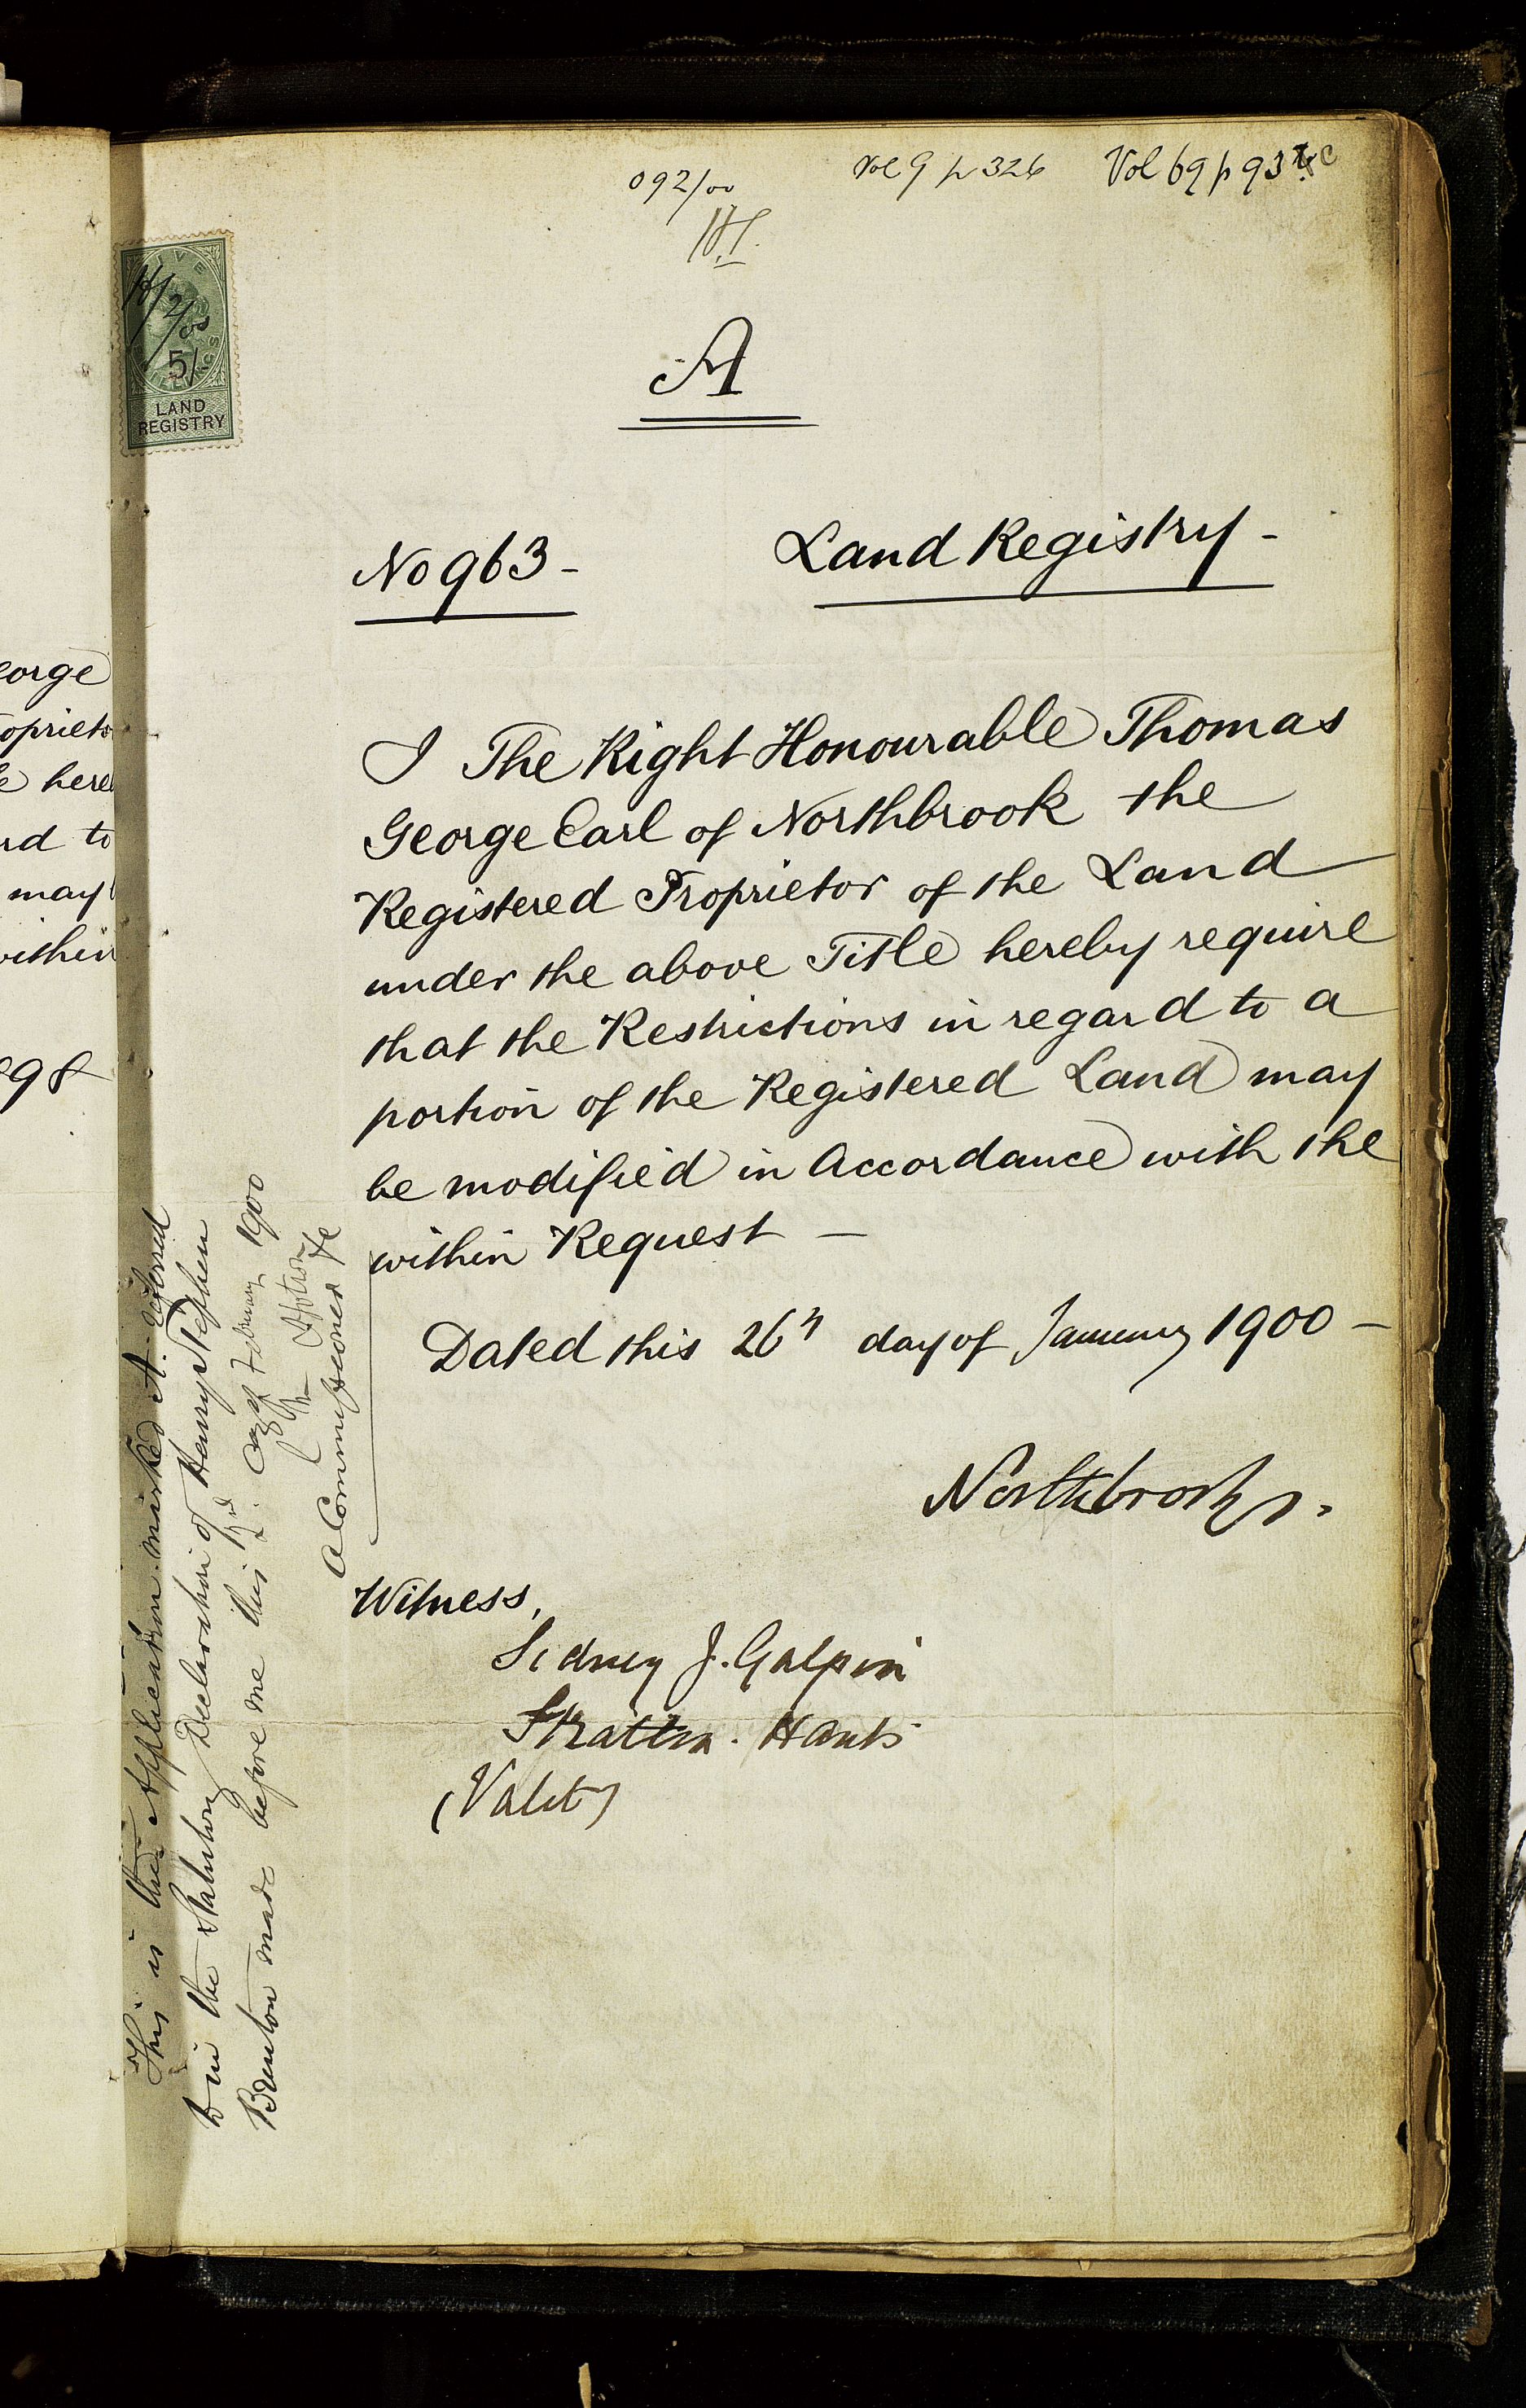 092/00
Vol 9 p 326
Vol 69 p 93
FIVE
SHILLINGS
5/-
LAND
REGISTRY
A
No 963 -
Land Registry -
I The Right Honourable Thomas
George Earl of Northbrook the
Registered Proprietor of the Land
under the above Title hereby require
that the Restrictions in regard to a
portion of the Registered Land may
be modified in Accordance with the
within Request -
Dated this 26th day of January 1900 -
Northbrook
Witness,
Sidney J. Galpin
Stratton. Hants
(Valet)
This is the Application marked A. referred
to in the Statutory Declaration of Henry Stephen
Brenton made before me this day of February 1900
A Commissioner &c
eorge
roprieto
e here
rd to
may
within
898